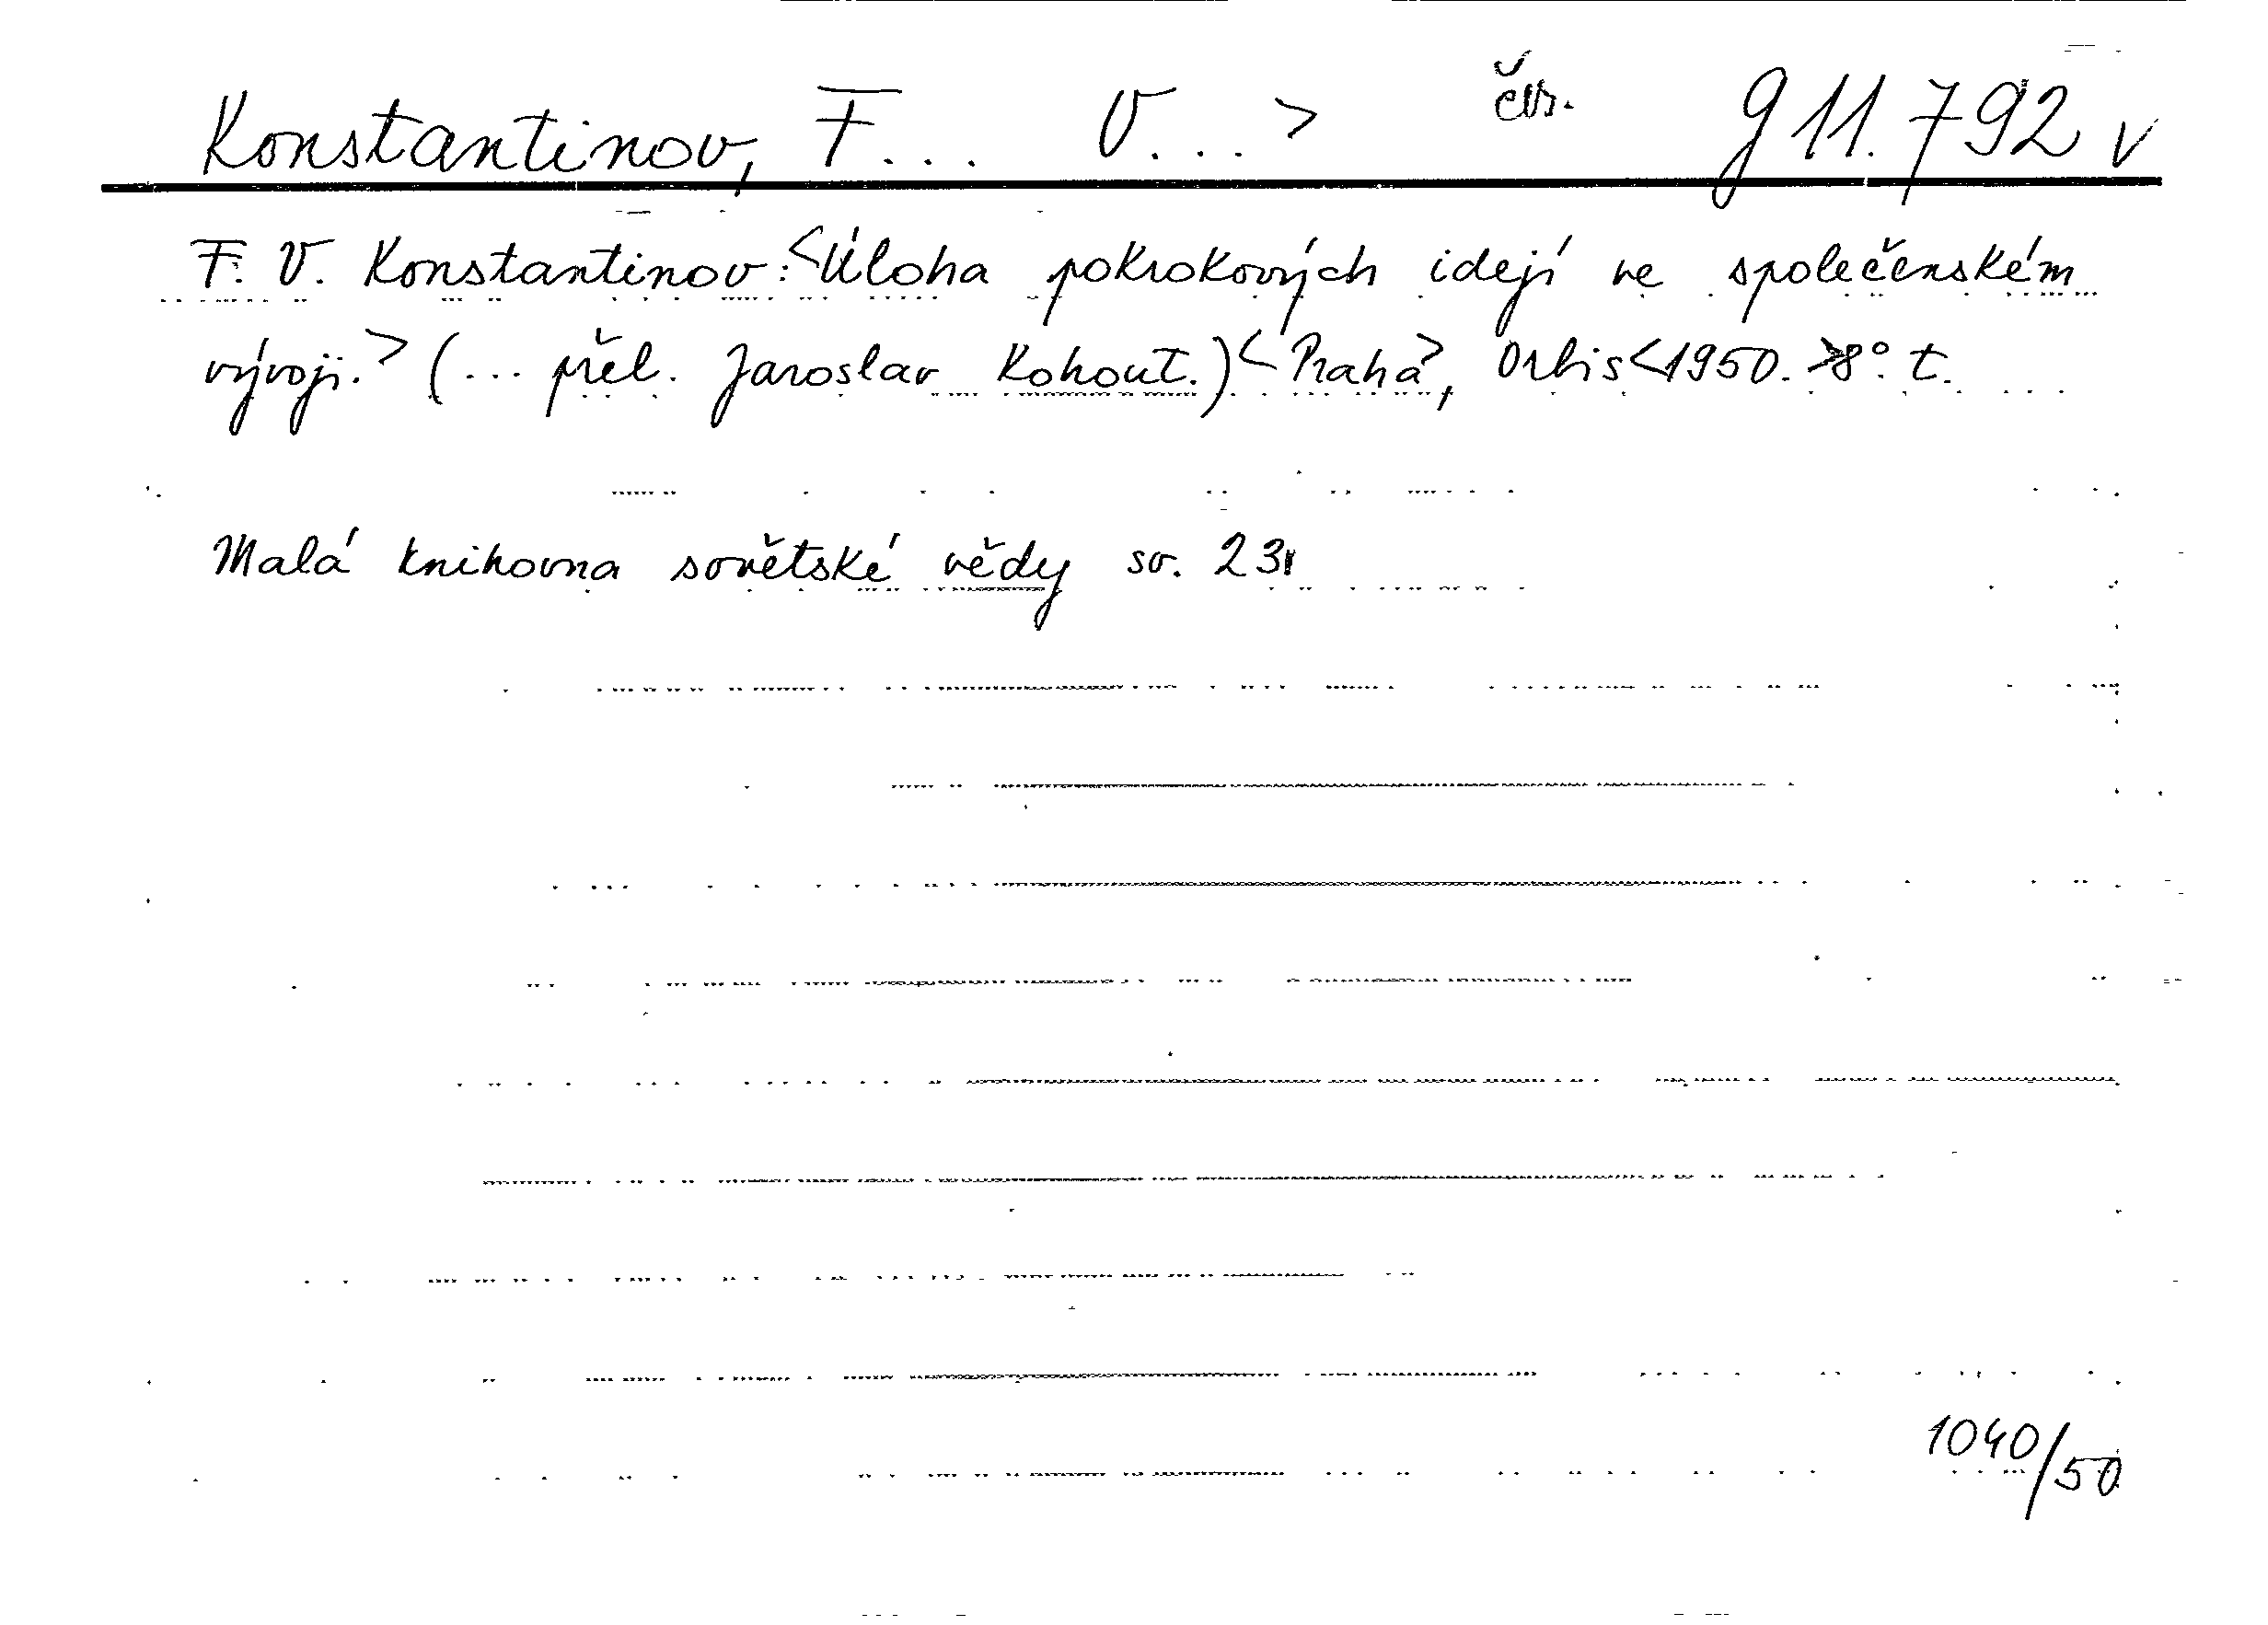 Konstantinov, F... V...> čes. g 11.792 v
F. V. Konstantinov: <Úloha pokrokových idejí ve společenském
vývoji.> (... přel. Jaroslav Kohout.) <Praha>, Orbis <1950.> 8°. t.
Malá knihovna sovětské vědy sv. 23
1040/50